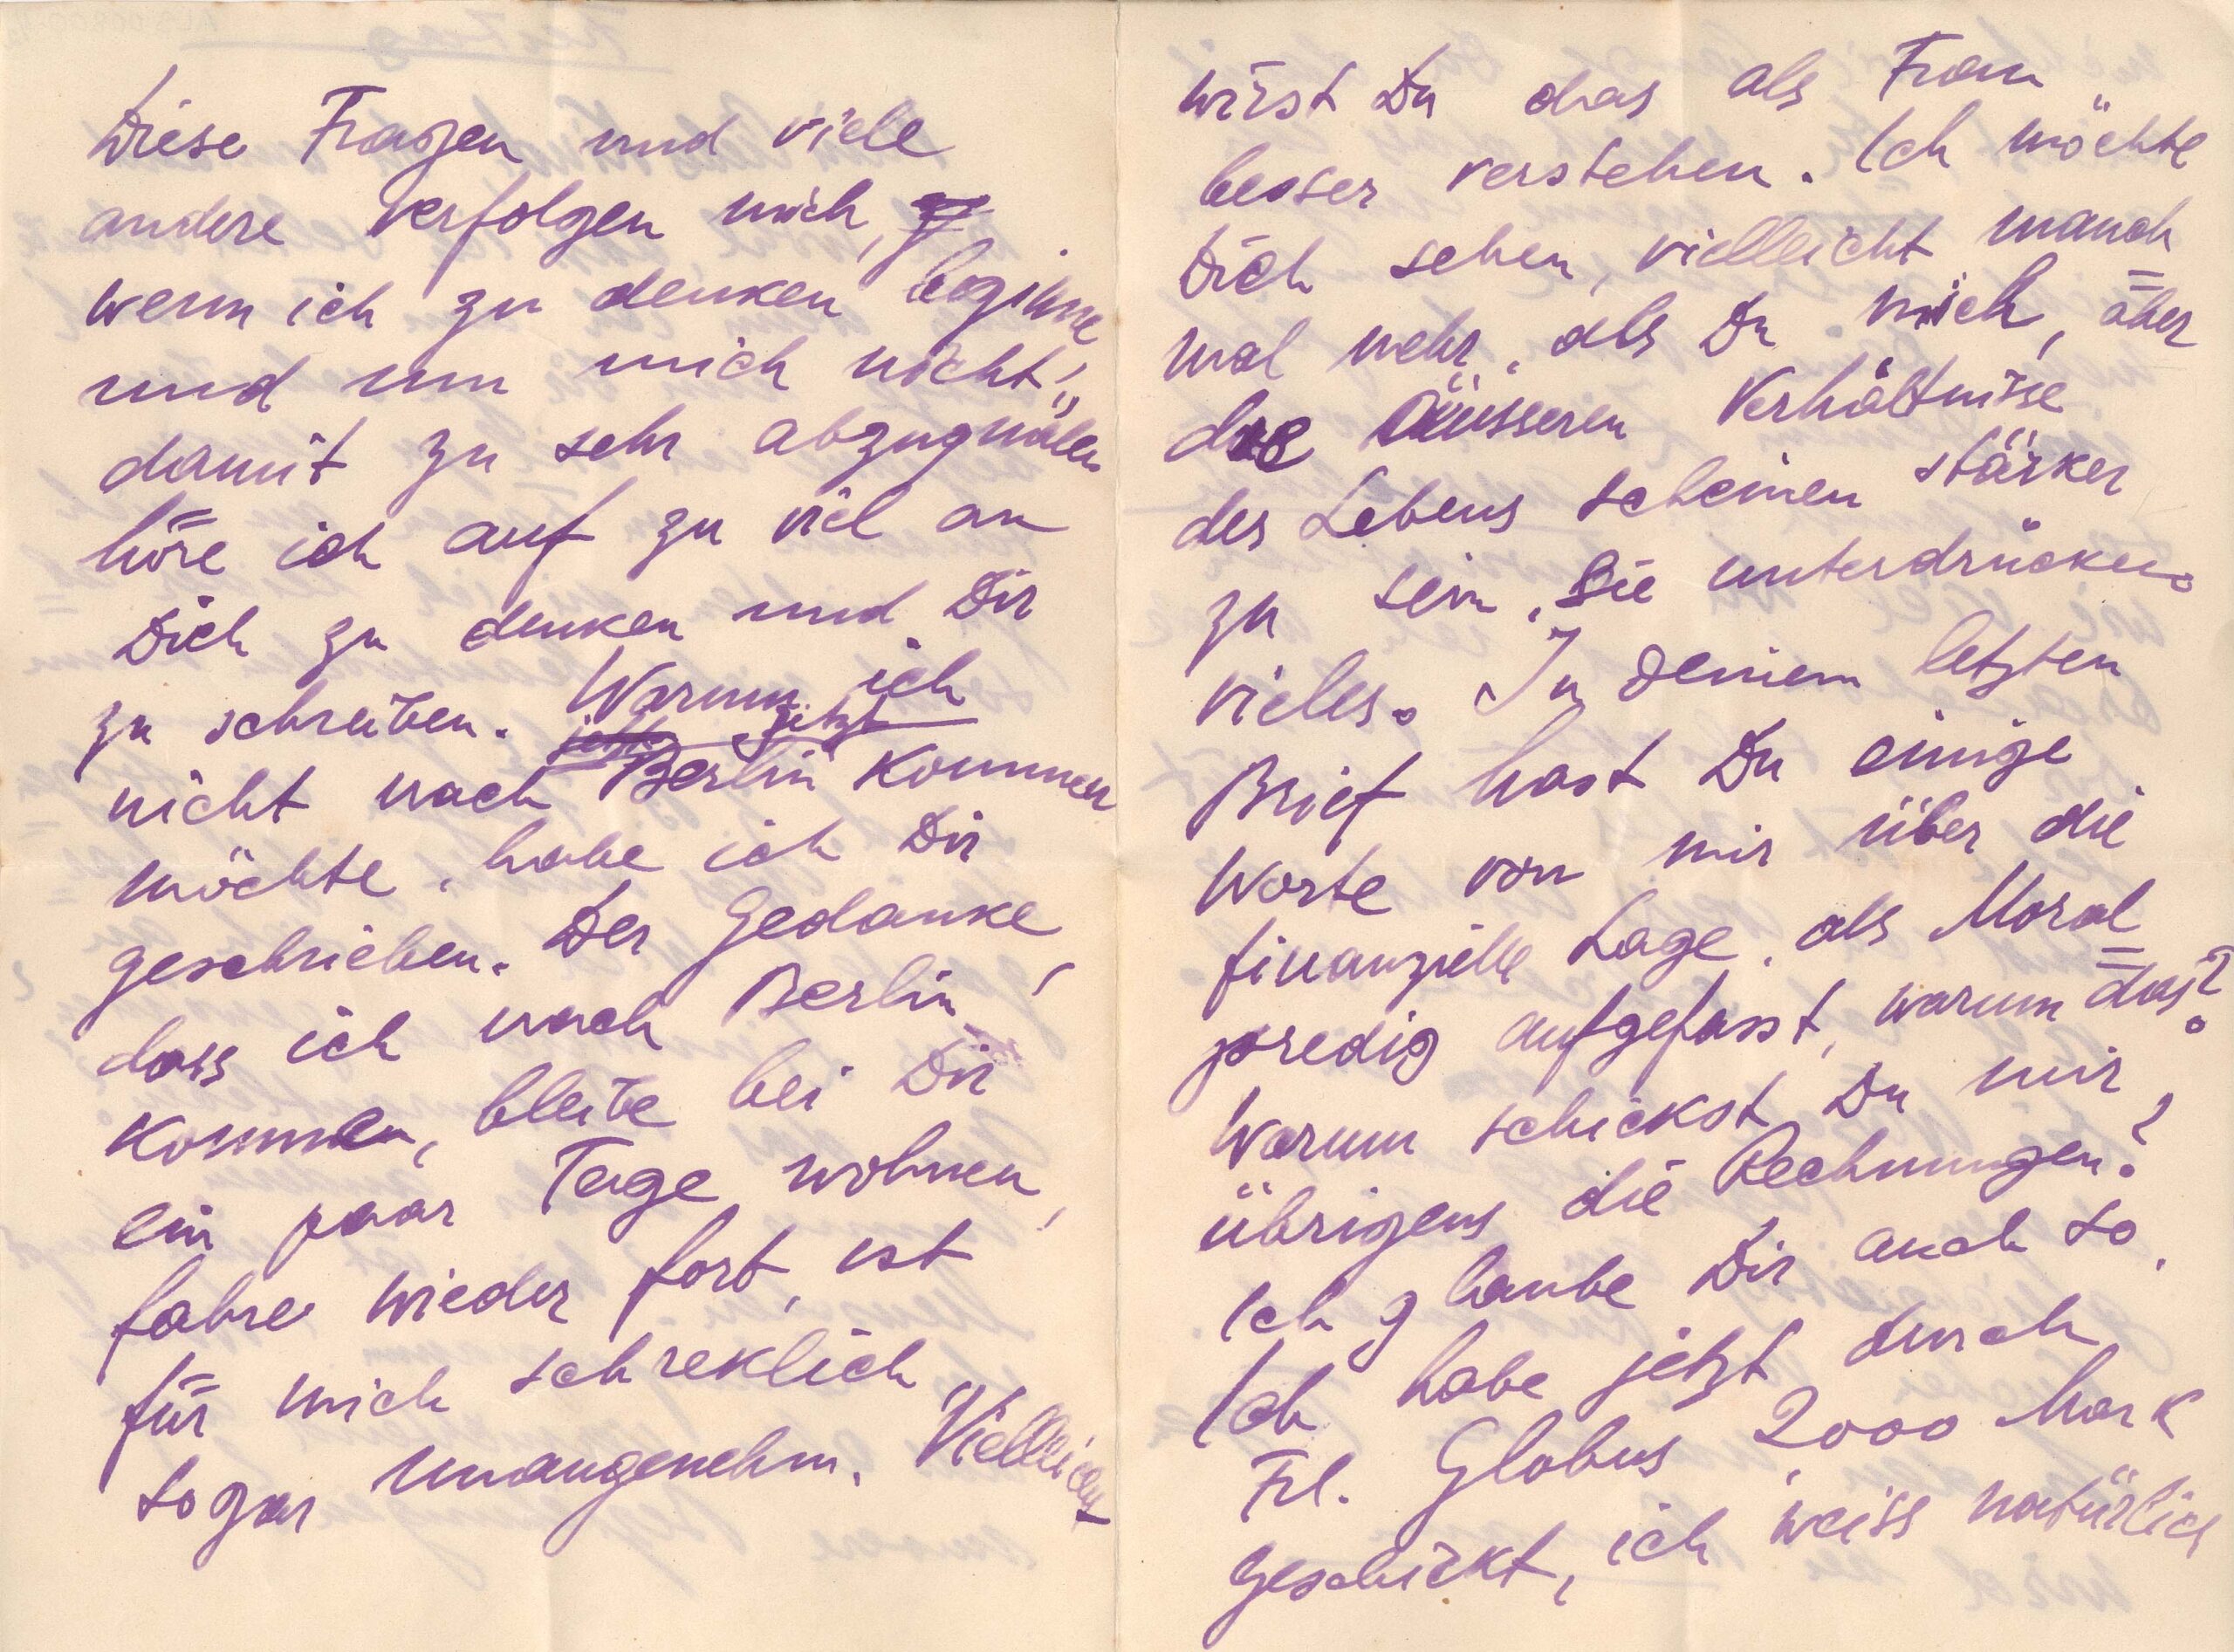 Diese Fragen und viele
andere verfolgen mich,
wenn ich zu denken beginne
und um mich nicht
damit zu sehr abzuquälen
höre ich auf zu viel an
Dich zu denken und Dir
zu schreiben. Warum ich
jetzt
nicht nach Berlin kommen
möchte, habe ich Dir
geschrieben. Der Gedanke,
dass ich nach Berlin
kommen, bleibe bei Dir
ein paar Tage wohnen,
fahre wieder fort, ist
für mich schreklich
sogar unangenehm. Vielleicht
wirst Du das als Frau
besser verstehen. Ich möchte
Dich sehen, vielleicht manch
mal mehr, als Du mich, aber
die äusseren Verhältnisse
des Lebens scheinen stärker
zu sein. Sie unterdrücken
vieles. In Deinem letzten
Brief hast Du einige
Worte von mir über die
finanzielle Lage, als Moral
predig aufgefasst, warum das?
Warum schickst Du mir
übrigens die Rechnungen?
Ich glaube Dir auch so.
Ich habe jetzt durch
Frl. Globus 2000 Mark
geschickt, ich weiss natürlich